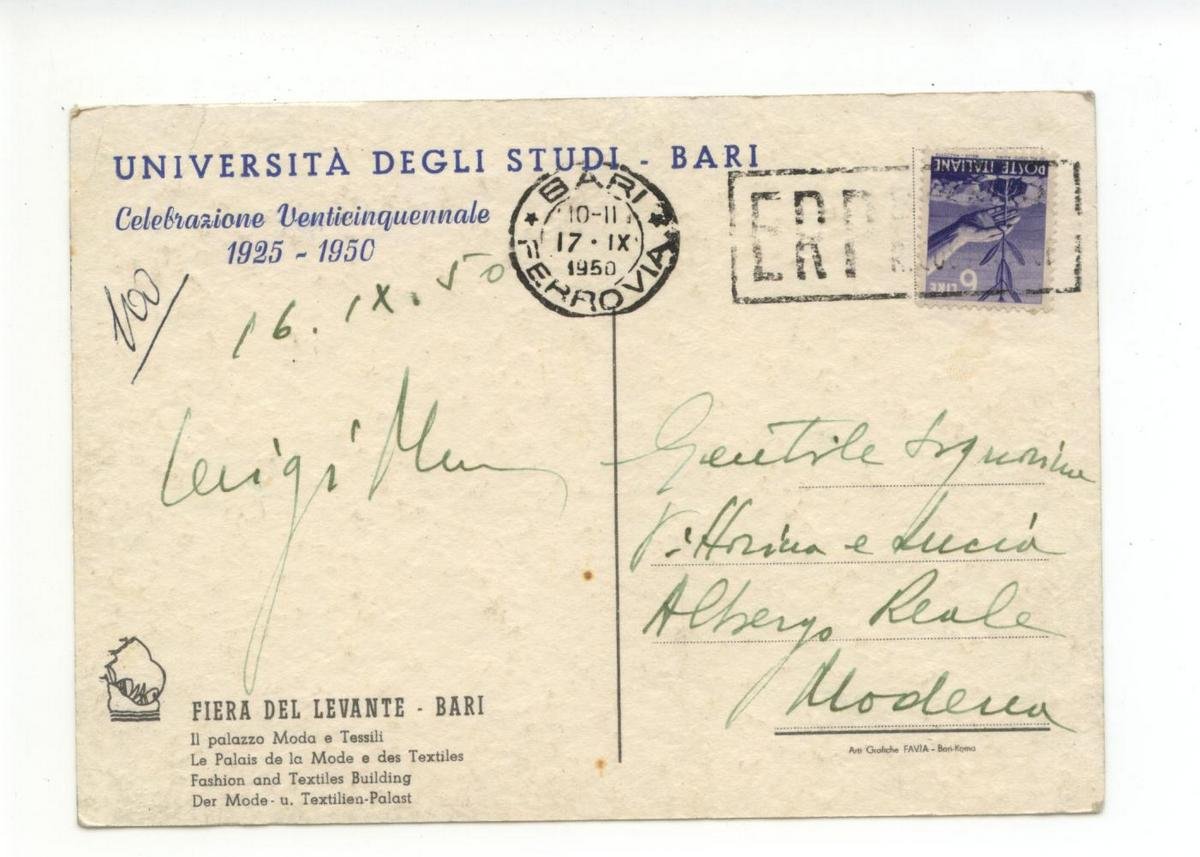 UNIVERSITÀ DEGLI STUDI - BARI
Celebrazione Venticinquennale
1925 - 1950
BARI
10-11
17 · IX
1950
FERROVIA
ERP
POSTE ITALIANE
6
LIRE
100
16. IX. 50
Luigi
Gentile Signorina
Vittorina e Lucia
Albergo Reale
Modena
FIERA DEL LEVANTE - BARI
Il palazzo Moda e Tessili
Le Palais de la Mode e des Textiles
Fashion and Textiles Building
Der Mode- u. Textilien-Palast
Arti Grafiche FAVIA - Bari-Roma